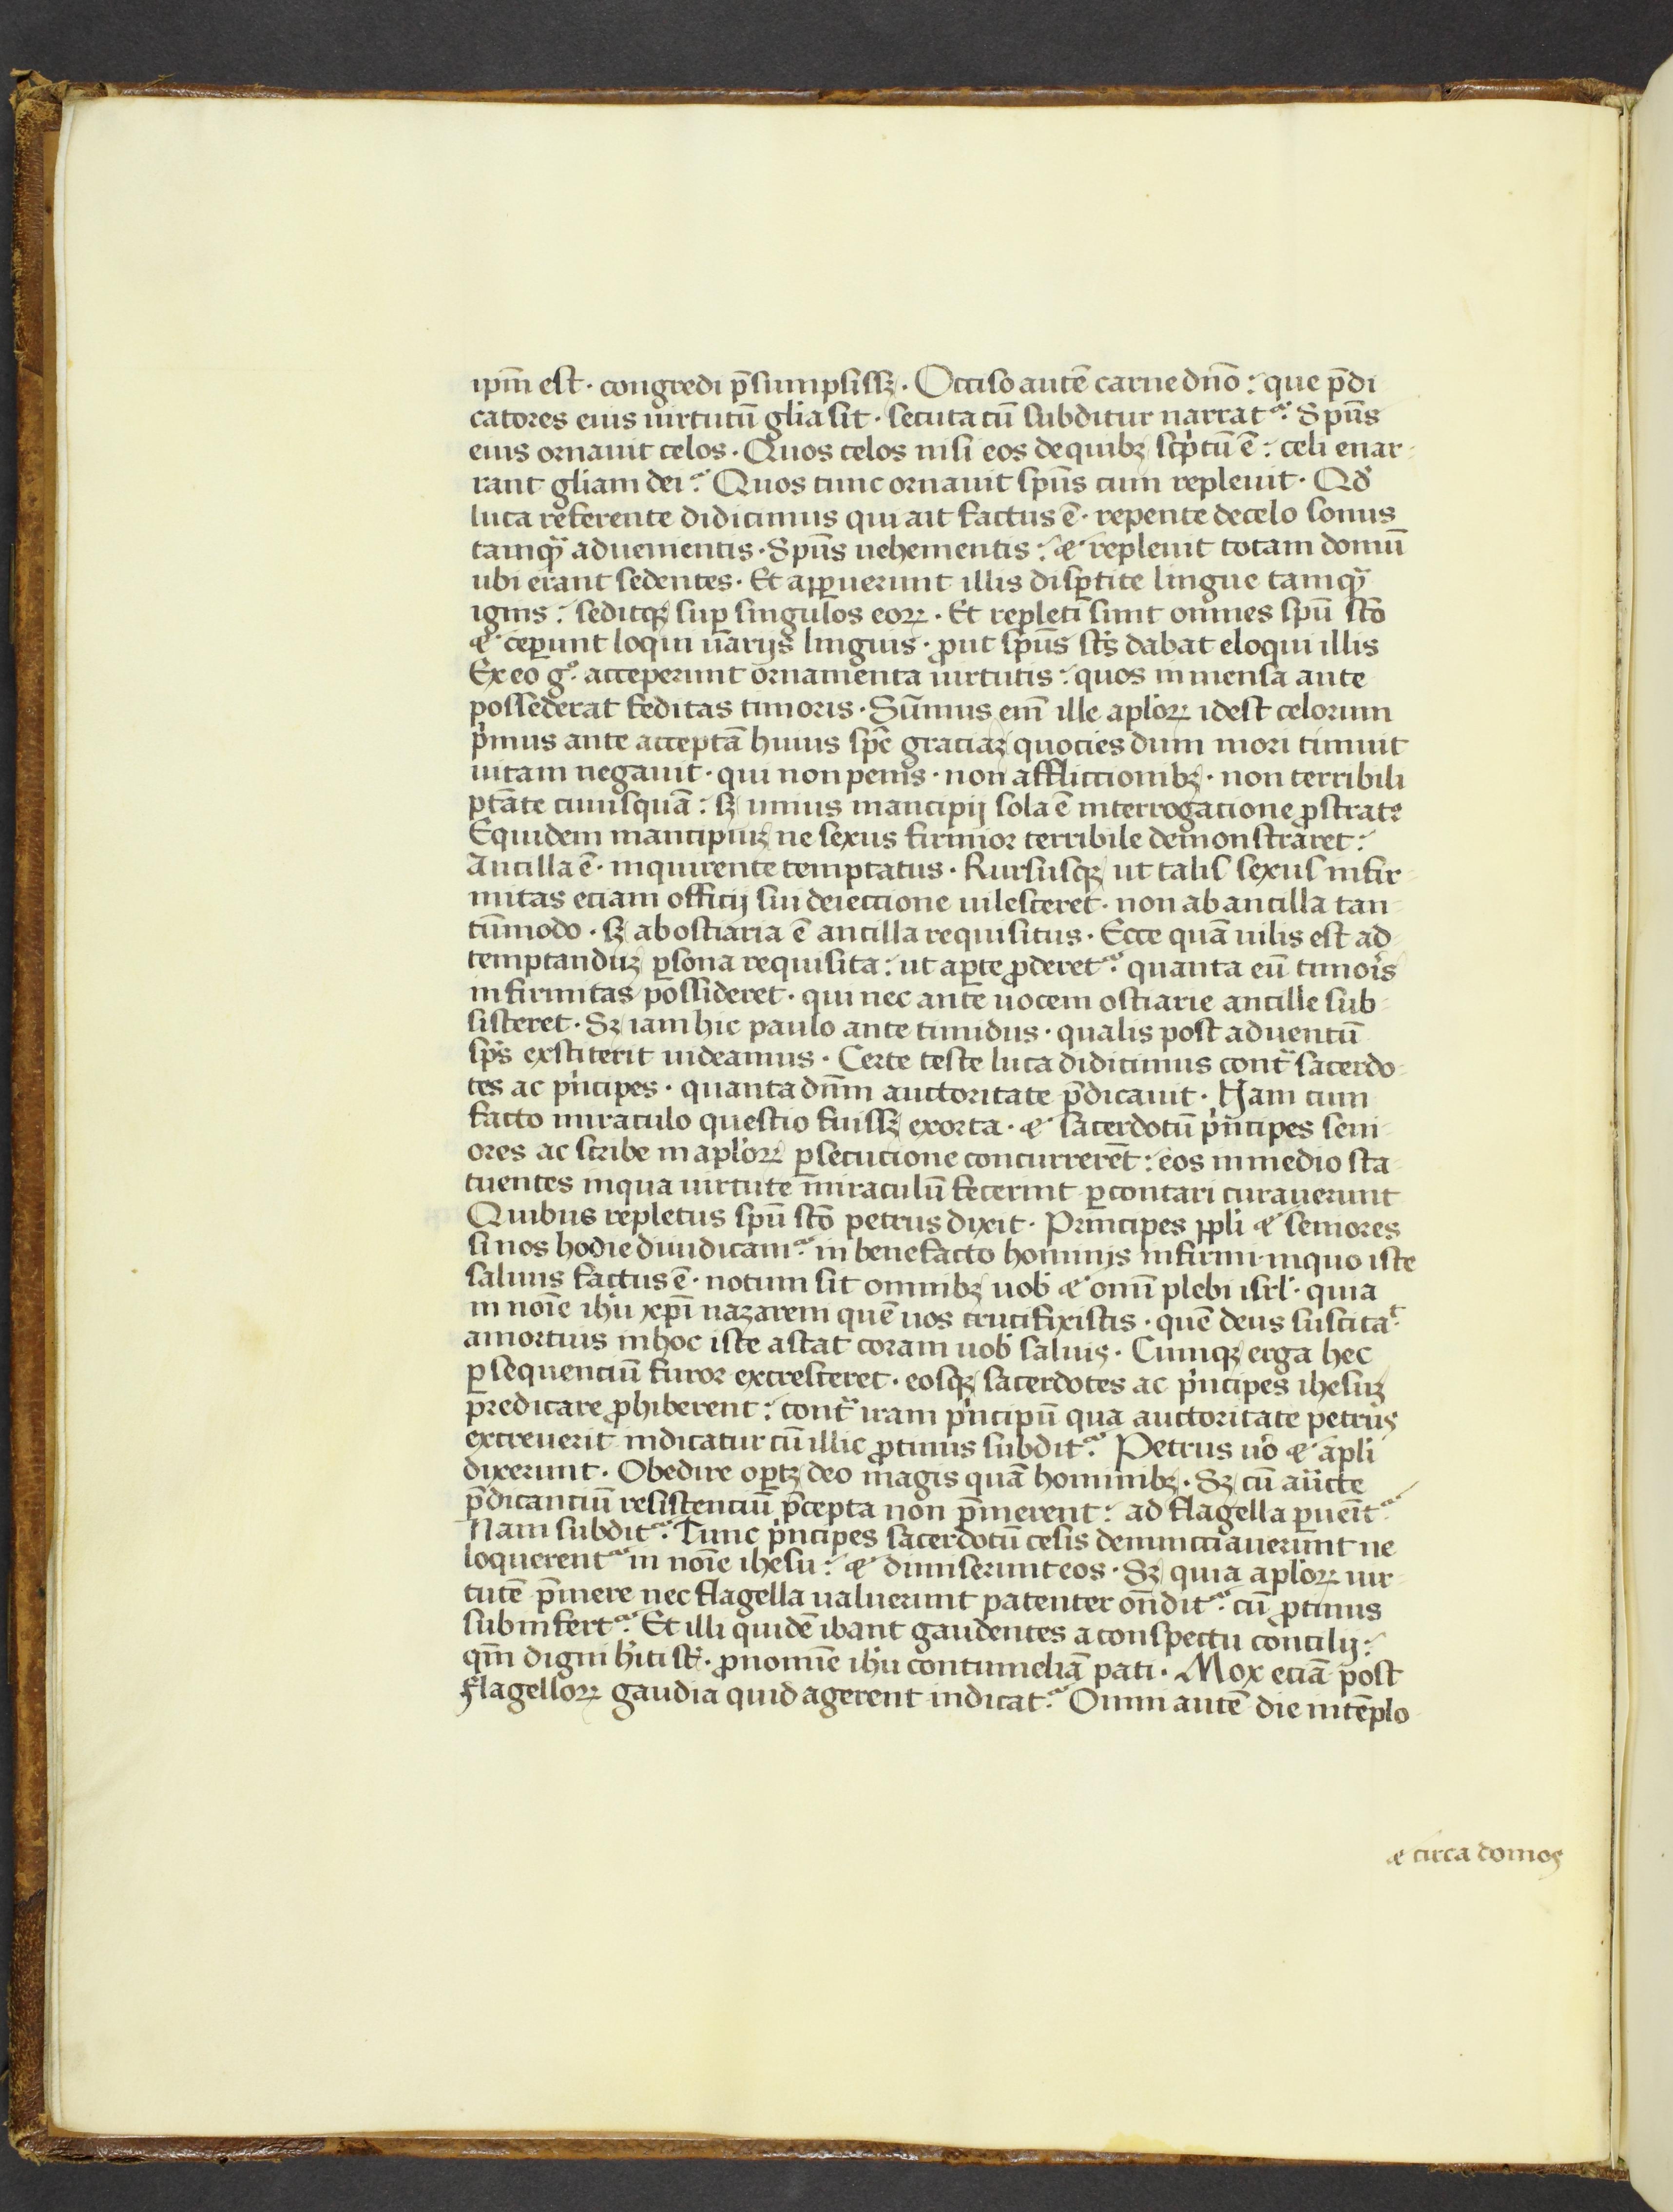 ipm̄ est · congredi p̄sumpsissꝫ · Occiso autē carne dn̄o : que p̄di
catores eius uirtutū glīa sit · secuta cū subditur narratᷣ : Spūs
eius ornauit celos · Quos celos nisi eos de quibꝫ scͥptū ē : celi enar-
rant glīam dei : Quos tunc ornauit spūs cum repleuit · Qd̓
luca referente didicimus qui ait factus ē · repente de celo sonus
tamqᷓ aduenientis · Spūs uehementis : ⁊ repleuit totam domū
ubi erant sedentes · Et aꝑuerunt illis disꝑtite lingue tamqᷓ
ignis : seditqꝫ suꝑ singulos eoꝝ · Et repleti sunt omnes spū sc̄o
⁊ ceꝑunt loqui uarijs linguis · ꝓut spūs sc̄s dabat eloqui illis
Ex eo gͦ · acceperunt ornamenta uirtutis : quos inmensa ante
possederat feditas timoris · Sūmus em̄ ille aploꝝ idest celorum
pͥmus ante acceptā huius spc̄ graciaꝫ quocies dum mori timuit
uitam negauit · qui non penis · non affliccionibꝫ · non terribili
ptāte cuiusquā : sꝫ unius mancipij sola ē interrogacione ꝓstratꝰ
Equidem mancipiuꝫ ne sexus firmior terribile demonstraret :
Ancilla ē · inquirente temptatus · Rursusqꝫ ut talis sexus infir-
mitas eciam officij sui deieccione uilesceret · non ab ancilla tan-
tūmodo · sꝫ ab ostiaria ē ancilla requisitus · Ecce quā uilis est ad-
temptanduꝫ ꝑsona requisita : ut aꝑte ꝓderetᷣ : quanta eū timoris
infirmitas possideret · qui nec ante uocem ostiarie ancille sub-
sisteret · Sꝫ iam hic paulo ante timidus · qualis post aduentū
sp̄s exstiterit uideamus · Certe teste luca didicimus contᷓ sacerdo-
tes ac pͥncipes · quanta dn̄m auctoritate p̄dicauit · Nam cum
facto miraculo questio fuissꝫ exorta · ⁊ sacerdotū pͥncipes seni-
ores ac scribe in aploꝝ ꝑsecucione concurrerēt : eos in medio sta-
tuentes in qua uirtute miraculū fecerint ꝑcontari curauerunt
Quibus repletus spū sc̄o petrus dixit · Principes ppli ⁊ seniores
si nos hodie diiudicamᷣ in benefacto hominis infirmi in quo iste
saluus factus ē · notum sit omnibꝫ uob̓ ⁊ omī plebi isrl̓ · quia
in noīe ihū xp̄i nazareni quē uos crucifixistis · quē deus suscitaᵗ
a mortuis in hoc iste astat coram uob̓ saluus · Cumqꝫ erga hec
ꝑsequenciū furor excresceret · eosqꝫ sacerdotes ac pͥncipes ihesuꝫ
predicare ꝓhiberent : contᷓ iram pͥncipū qua auctoritate petrus
excreuerit indicatur cū illic ꝓtinus subditᷣ : Petrus uͦo ⁊ apli
dixerunt · Obedire oꝑtꝫ deo magis quā hominibꝫ · Sꝫ cū aūcte
p̄dicanciū resistenciū p̄cepta non p̄merent : ad flagella ꝑuēitᷣ
Nam subditᷣ : Tunc pͥncipes sacerdotū cesis denunciauerunt ne
loquerentᷣ in noīe ihesu : ⁊ dimiserunt eos · Sꝫ quia aploꝝ uir-
tutē p̄mere nec flagella ualuerunt patenter on̄ditᷣ : cū ꝓtinus
subinfertᷣ : Et illi quidē ibant gaudentes a conspectu concilij :
qm̄ digni hīti st̄ · ꝓ nomīe ihū contumeliā pati · Mox eciā post
flagelloꝝ gaudia quid agerent indicatᷣ : Omni autē die in tēplo
⁊ circa domos